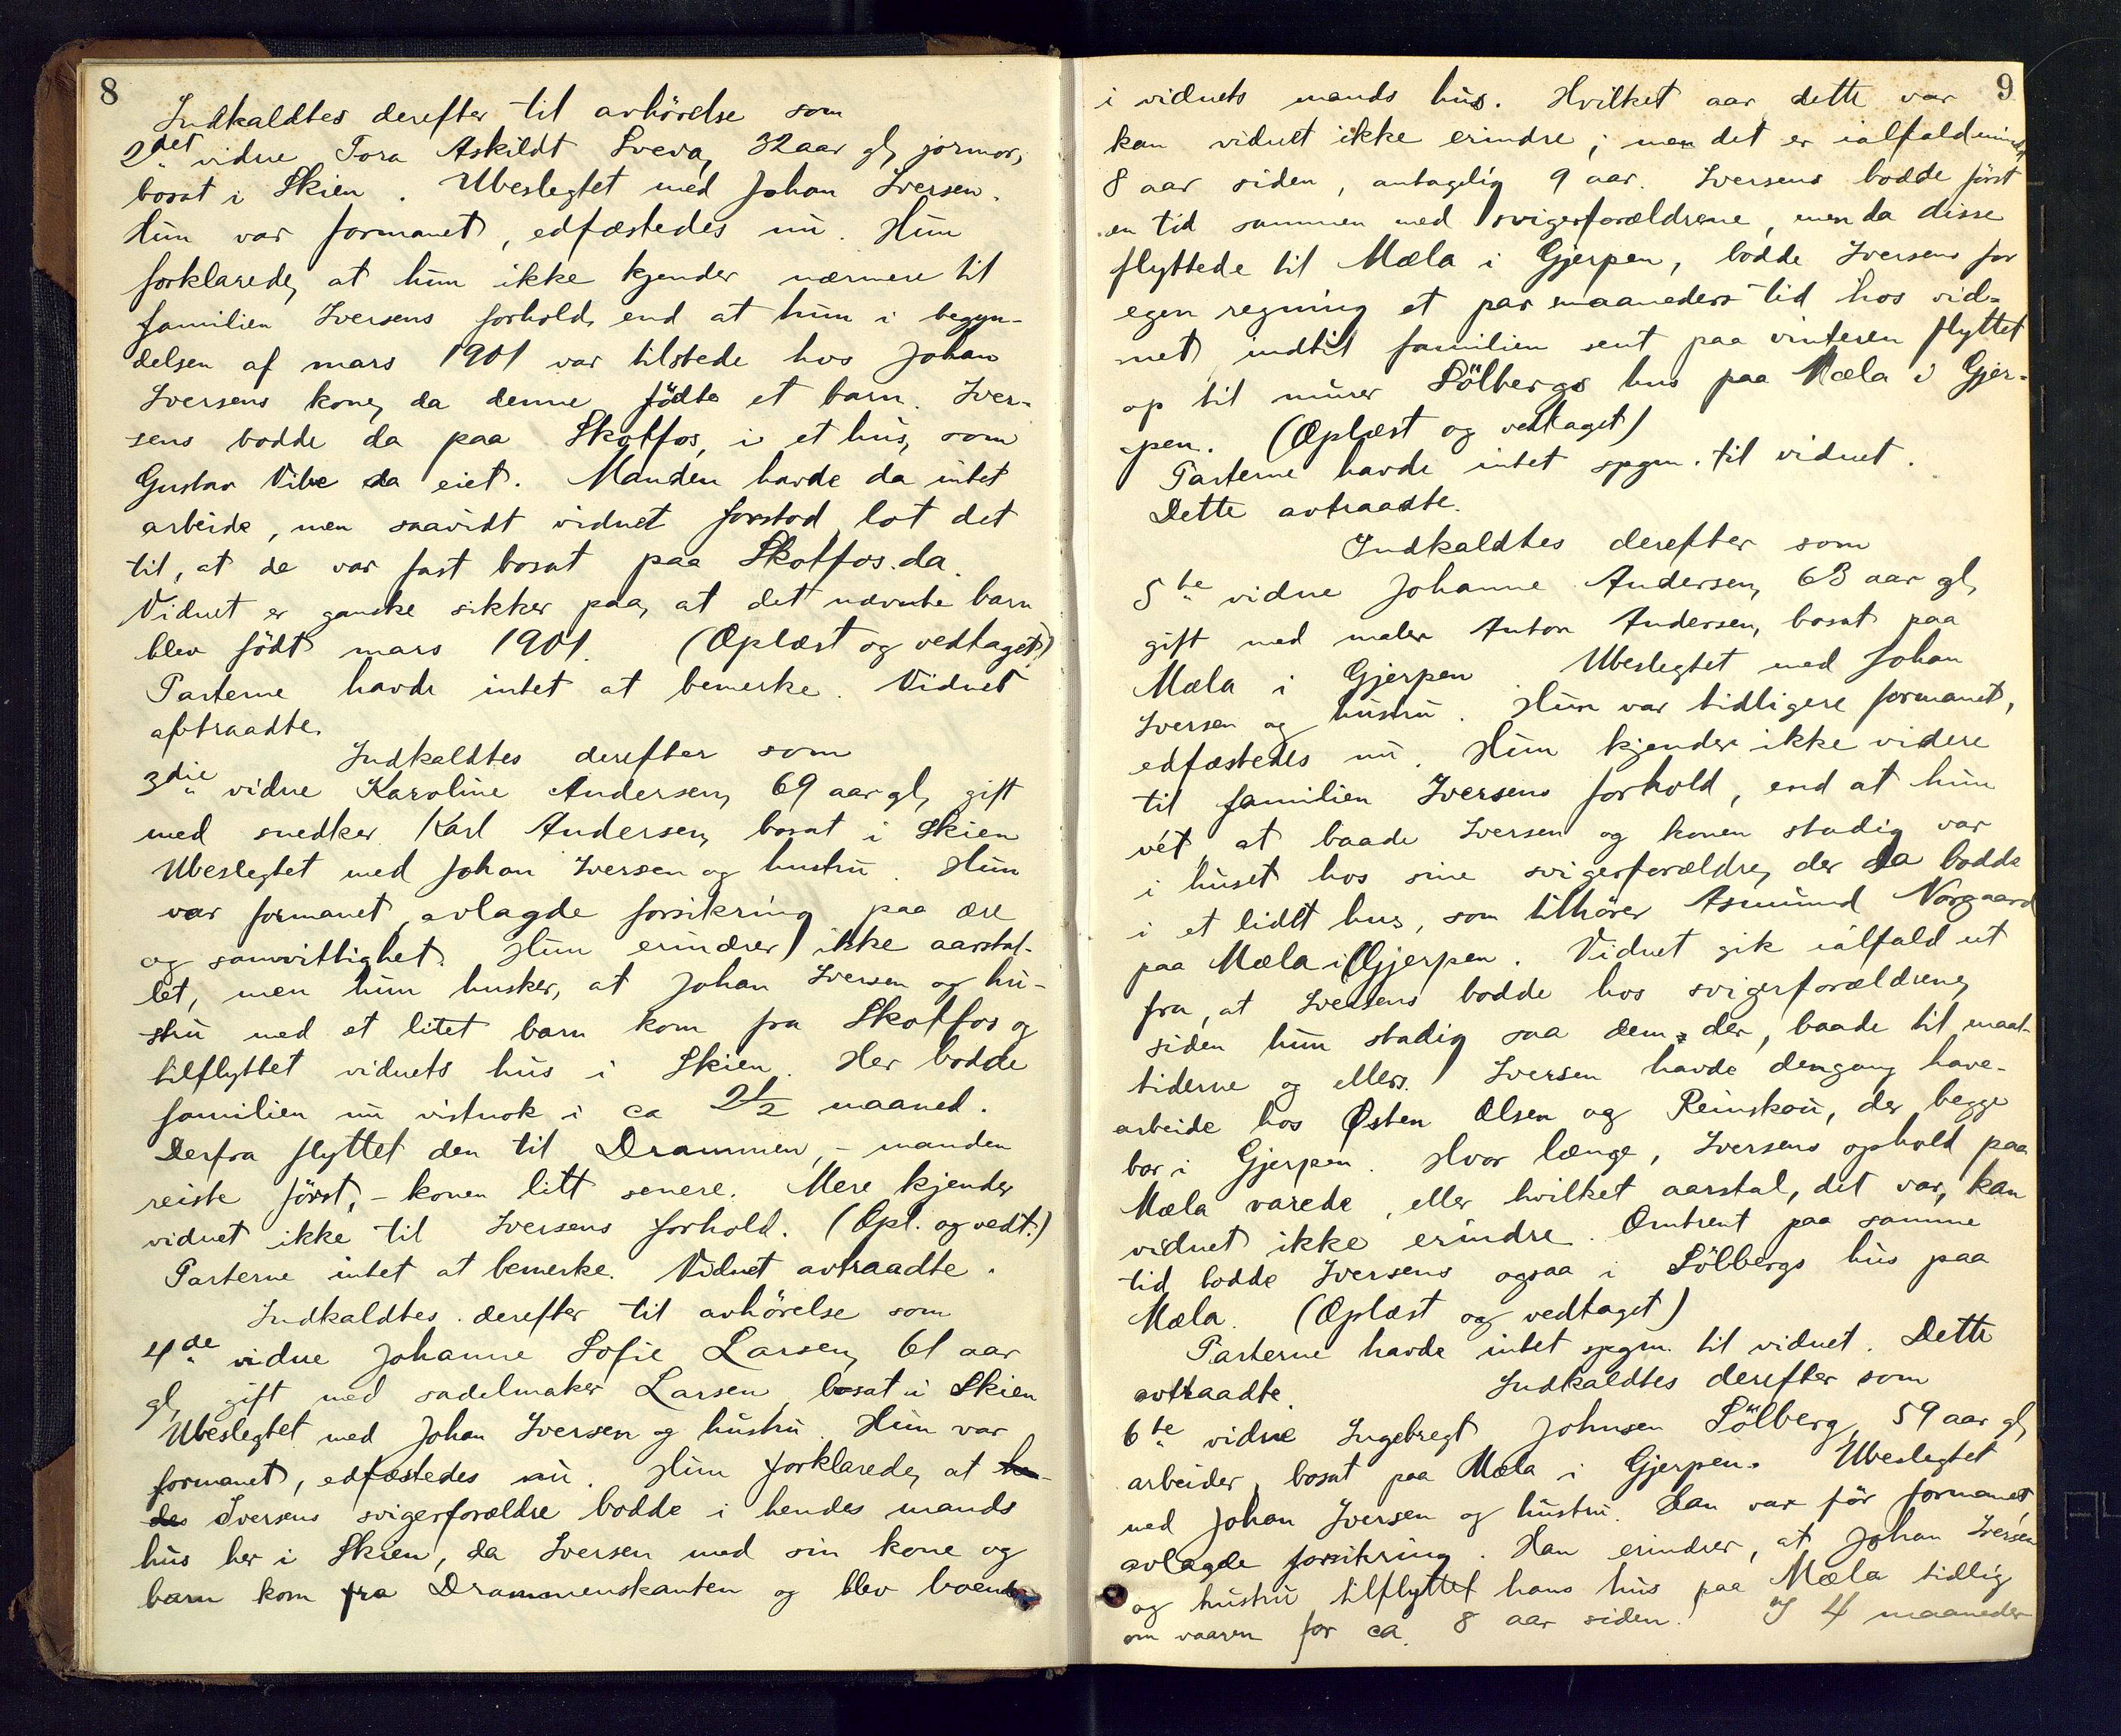 8
Indkaldtes derefter til avhörelse som
2det vidne Tora Askildt Sveva, 32 aar gl, jormor,
bosat i Skien. Ubeslegtet med Johan Iversen.
Hun var formanet, edfæstedes nu. Hun
forklarede, at hun ikke kjender nærmere til
familien Iversens forhold, end at hun i begyn-
delsen af mars 1901 var tilstede hos Johan
Iversens kone, da denne födte et barn. Iver-
sens bodde da paa Skotfos, i et hus, som
Gustav Vibe da eiet. Manden havde da intet
arbeide, men saavidt vidnet forstod, lot det
til, at de var fast bosat paa Skotfos da.
Vidnet er ganske sikker paa, at det nævnte barn
blev födt mars 1901. (Oplæst og vedtaget.)
Parterne havde intet at bemerke. Vidnet
aftraadte.
Indkaldtes derefter som
3die vidne Karoline Andersen, 69 aar gl, gift
med snedker Karl Andersen, bosat i Skien
Ubeslegtet med Johan Iversen og hustru. Hun
var formanet, avlagde forsikring paa ære
og samvittighet. Hun erindrer ikke aarstal-
let, men hun husker, at Johan Iversen og hu-
stru med et litet barn kom fra Skotfos og
tilflyttet vidnets hus i Skien. Her bodde
familien nu vistnok i ca 2 1/2 maaned.
Derfra flyttet den til Drammen, - manden
reiste först, - konen litt senere. Mere kjender
vidnet ikke til Iversens forhold. (Opl. og vedt.)
Parterne intet at bemerke. Vidnet avtraadte.
Indkaldtes derefter til avhörelse som
4de vidne Johanne Sofie Larsen, 61 aar
gl, gift med sadelmaker Larsen, bosat i Skien
Ubeslegtet med Johan Iversen og hustru. Hun var
formanet, edfæstedes nu. Hun forklarede, at hen-
des Iversens svigerforældre bodde i hendes mands
hus her i Skien, da Iversen med sin kone og
barn kom fra Drammenskanten og blev boende
9
i vidnets mands hus. Hvilket aar dette var
kan vidnet ikke erindre; men det er ialfald mindst
8 aar siden, antagelig 9 aar. Iversens bodde först
en tid sammen med svigerforældrene, men da disse
flyttede til Mæla i Gjerpen, bodde Iversens for
egen regning et par maaneders tid hos vid-
net, indtil familien sent paa vinteren flyttet
op til murer Sölbergs hus paa Mæla i Gjer-
pen. (Oplæst og vedtaget)
Parterne havde intet spgm. til vidnet.
Dette avtraadte.
Indkaldtes derefter som
5te vidne Johanne Andersen, 63 aar gl,
gift med maler Anton Andersen, bosat paa
Mæla i Gjerpen. Ubeslegtet med Johan
Iversen og hustru. Hun var tidligere formanet,
edfæstedes nu. Hun kjender ikke videre
til familien Iversens forhold, end at hun
vét, at baade Iversen og konen stadig var
i huset hos sine svigerforældre, der da bodde
i et lidet hus, som tilhörer Asmund Norgaard
paa Mæla i Gjerpen. Vidnet gik ialfald ut
fra, at Iversens bodde hos svigerforældrene,
siden hun stadig saa dem der, baade til maal-
tiderne og ellers. Iversen havde dengang have-
arbeide hos Østen Olsen og Reinskou, der begge
bor i Gjerpen. Hvor længe, Iversens ophold paa
Mæla varede, eller hvilket aarstal, det var, kan
vidnet ikke erindre. Omtrent paa samme
tid bodde Iversens ogsaa i Sölbergs hus paa
Mæla. (Oplæst og vedtaget)
Parterne havde intet spgm. til vidnet. Dette
avtraadte. Indkaldtes derefter som
6te vidne Ingebregt Johnsen Sölberg, 59 aar gl,
arbeider, bosat paa Mæla i Gjerpen. Ubeslegtet
med Johan Iversen og hustru. Han var för formanet,
avlagde forsikring. Han erindrer, at Johan Iversen
og hustru tilflyttet hans hus paa Mæla tidlig
om vaaren for ca. 8 aar siden. og 4 maaneder